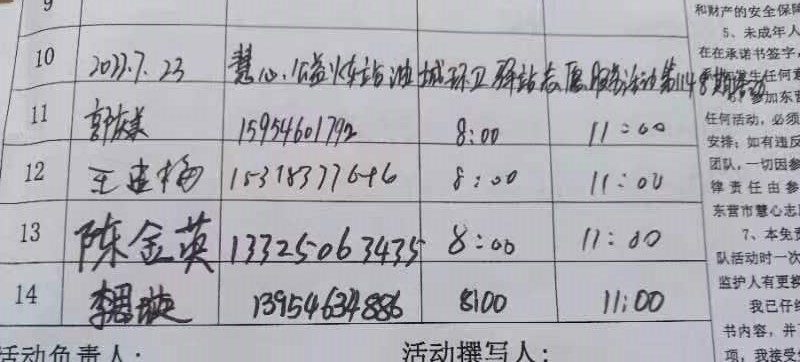 9
10 2022.7.23 慧心公益火炬站油城环卫驿站志愿服务活动第1148期活动
11 郭庆美 15954601792 8:00 11:00
12 王建梅 15318377646 8:00 11:00
13 陈金英 13325063435 8:00 11:00
14 李思璇 13954634886 8:00 11:00
活动负责人: 活动撰写人:
和财产的安全保障
5、未成年人
在在承诺书签字,
生任何意
参加东营
任何活动,必须
安排;如有违反
团队,一切因参
律责任由参
东营市慧心志愿
7、本免责
队活动时一次
监护人有更换
我已仔细
书内容,并
项,我接受